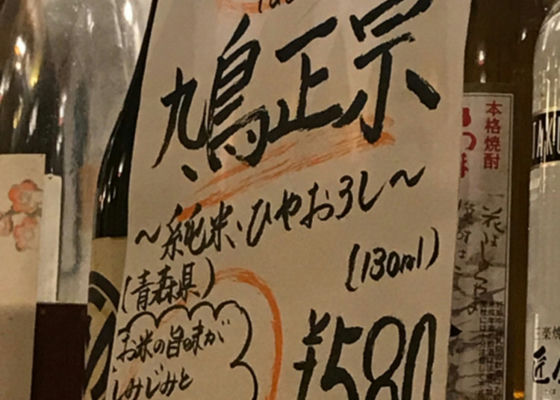 鳩正宗
～純米、ひやおろし～
(青森県)
(130ml)
お米の旨味が
しみじみと
¥580
本格焼酎